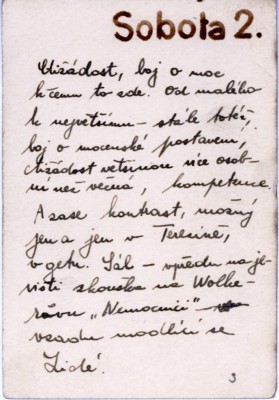 Sobota 2.
Ctižádost, boj o moc
k čemu to zde. Od malého
k největšímu – stále totéž,
boj o mocenské postavení,
ctižádost většinou více osob-
ní než věcná, kompetence.
A zase kontrast, možný
jen a jen v Teresině,
v getu. Sál – vpředu na je-
višti zkouška na Wolke-
rovu „Nemocnici” –
vzadu modlící se
Lidé.
3